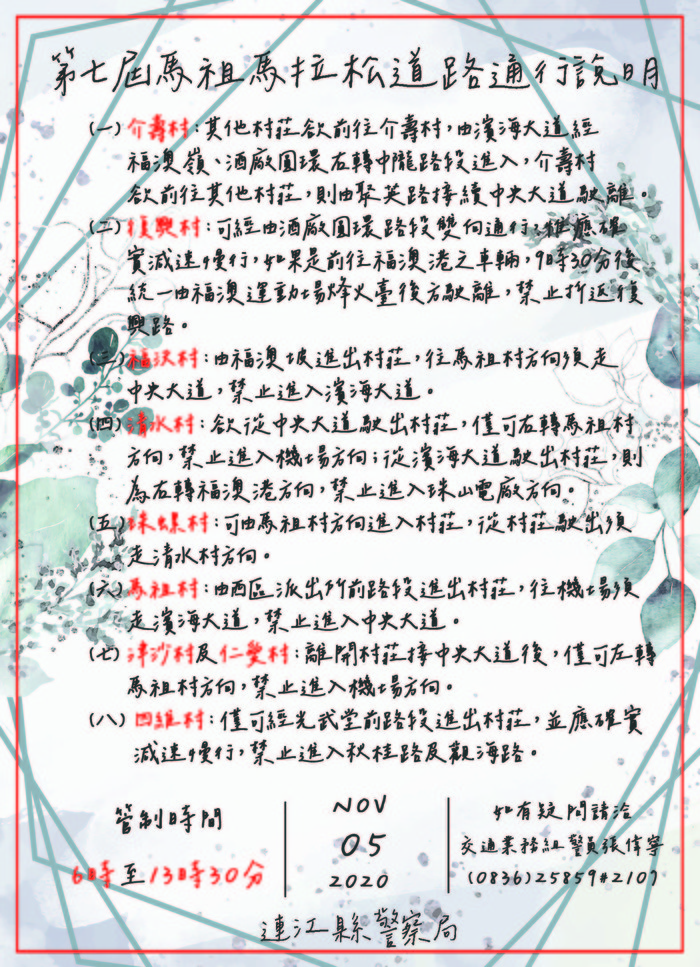 第七屆馬祖馬拉松道路通行說明
(一)介壽村:其他村莊欲前往介壽村,由濱海大道經
福澳嶺、酒廠圓環左轉中隴路段進入,介壽村
欲前往其他村莊,則由聚英路接續中央大道駛離。
(二)復興村:可經由酒廠圓環路段雙向通行,惟應確
實減速慢行,如果是前往福澳港之車輛,9時30分後
統一由福澳運動場烽火臺後方駛離,禁止折返復
興路。
(三)福沃村:由福澳坡進出村莊,往馬祖村方向須走
中央大道,禁止進入濱海大道。
(四)清水村:欲從中央大道駛出村莊,僅可右轉馬祖村
方向,禁止進入機場方向;從濱海大道駛出村莊,則
為左轉福澳港方向,禁止進入珠山電廠方向。
(五)珠螺村:可由馬祖村方向進入村莊,從村莊駛出須
走清水村方向。
(六)馬祖村:由西區派出所前路段進出村莊,往機場須
走濱海大道,禁止進入中央大道。
(七)津沙村及仁愛村:離開村莊接中央大道後,僅可左轉
馬祖村方向,禁止進入機場方向。
(八)四維村:僅可經光武堂前路段進出村莊,並應確實
減速慢行,禁止進入秋桂路及觀海路。
管制時間
6時至13時30分
NOV
05
2020
如有疑問請洽
交通業務組警員張偉寧
(0836)25859#2107
連江縣警察局